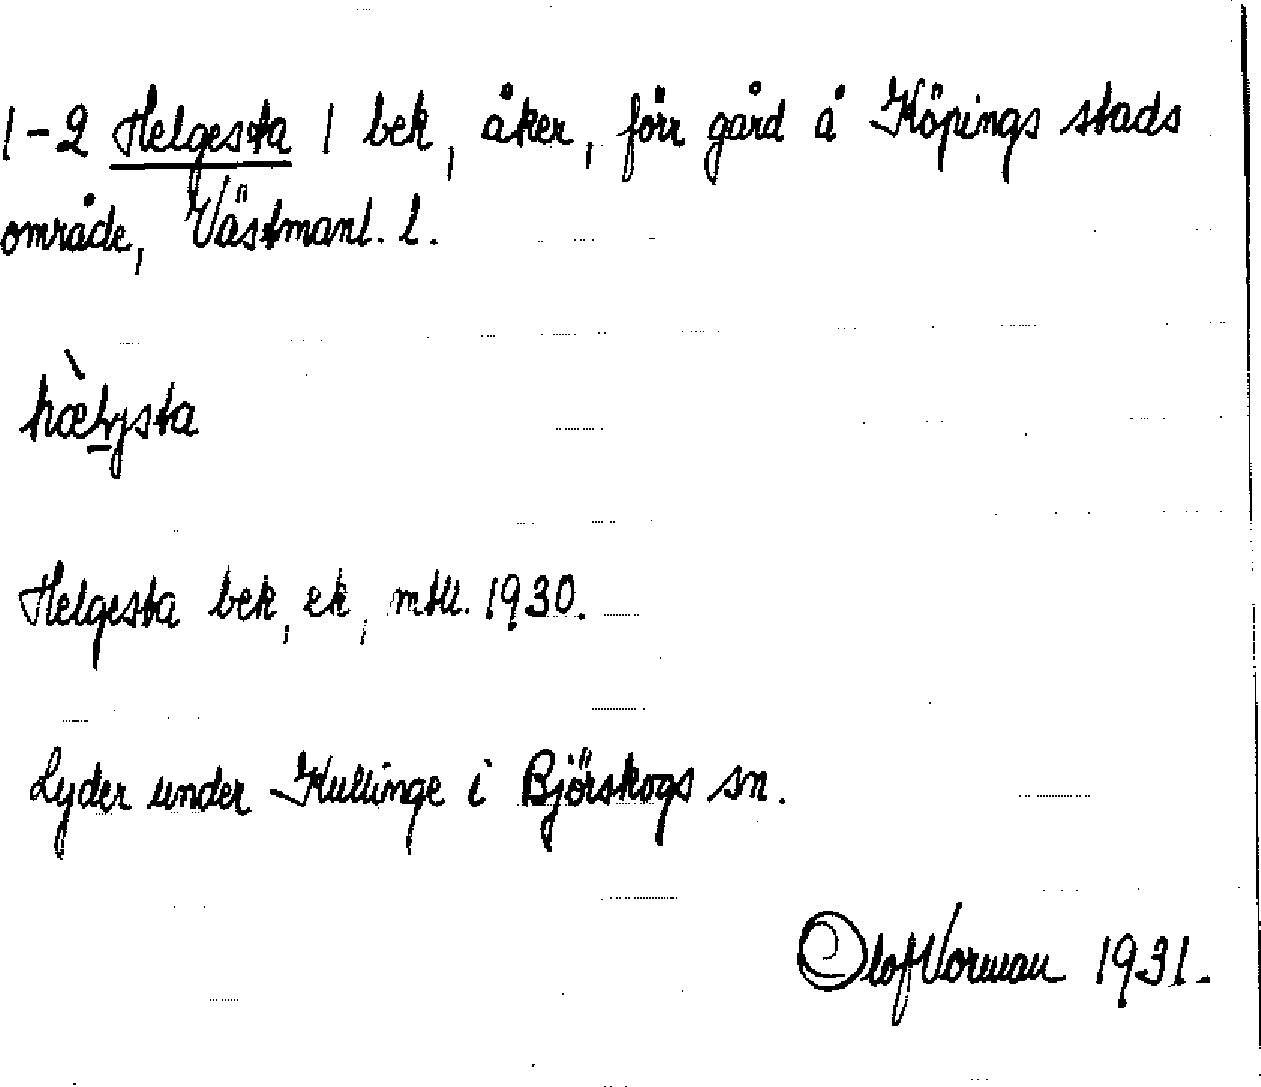 1-2 Helgesta 1 bek, åker, förr gård å Köpings stads
område, Västmanl. l.
hæ̀ljsta
Helgesta bek, ek, mtll. 1930.
Lyder under Kullinge i Björskogs sn.
Olof Vorman 1931.